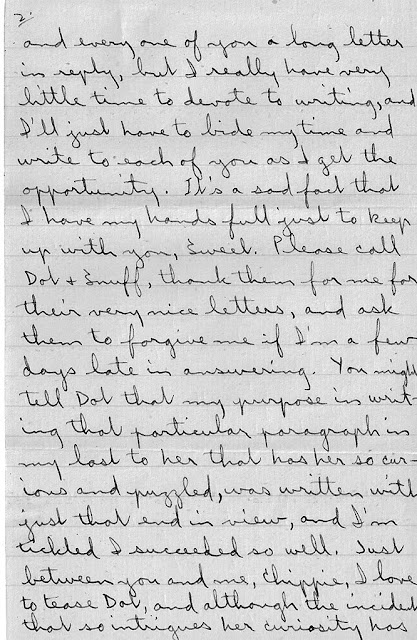 2.
and every one of you a long letter
in reply, but I really have very
little time to devote to writing, and
I'll just have to bide my time and
write to each of you as I get the
opportunity. It's a sad fact that
I have my hands full just to keep
up with you, Sweet. Please call
Dot & Snuff, thank them for me for
their very nice letters, and ask
them to forgive me if I'm a few
days late in answering. You might
tell Dot that my purpose in writ-
ing that particular paragraph in
my last to her that has her so cur-
ious and puzzled, was written with
just that end in view, and I'm
tickled I succeeded so well. Just
between you and me, Chippie, I love
to tease Dot, and although the incident
that so intrigues her curiosity has